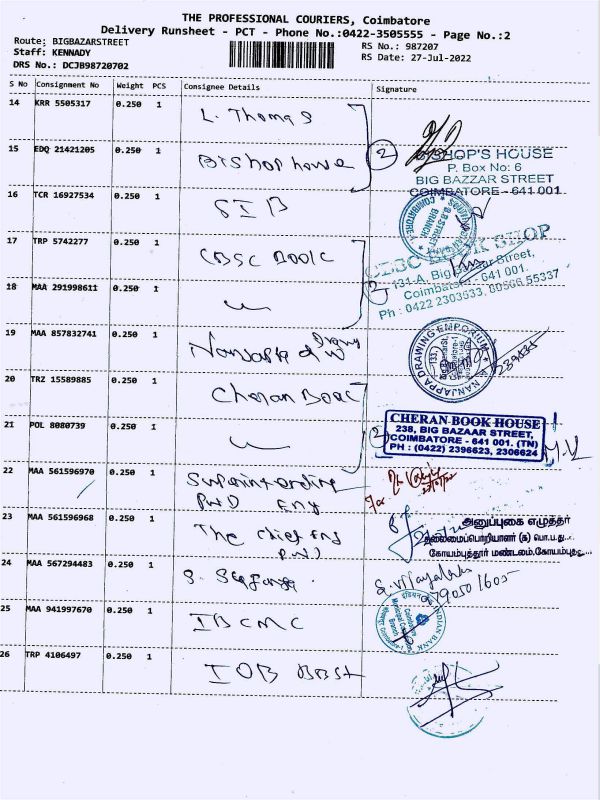 THE PROFESSIONAL COURIERS, Coimbatore
Delivery Runsheet - PCT - Phone No.:0422-3505555 - Page No.:2
Route: BIGBAZARSTREET
Staff: KENNADY
DRS No.: DCJB98720702
RS No.: 987207
RS Date: 27-Jul-2022
S No Consignment No Weight PCS Consignee Details Signature
14 KRR 5505317 0.250 1 L. Thomas
15 EDQ 21421205 0.250 1 Bishop house
2
BISHOP'S HOUSE
P. Box No: 6
BIG BAZZAR STREET
COIMBATORE - 641 001
16 TCR 16927534 0.250 1 SIB
B.B.STREET
BRANCH
COIMBATORE
17 TRP 5742277 0.250 1 CBSC Book
CBSC BOOK SHOP
131-A, Big Bazaar Street,
Coimbatore - 641 001.
Ph : 0422 2303533, 55337
18 MAA 291998611 0.250 1
2
19 MAA 857832741 0.250 1 Nanjappa Drawing
NANJAPPA DRAWING EMPORIUM
20 TRZ 15589885 0.250 1 Cheran Book
21 POL 8080739 0.250 1
2
CHERAN BOOK HOUSE
238, BIG BAZAAR STREET,
COIMBATORE - 641 001. (TN)
PH : (0422) 2396623, 2306624
22 MAA 561596970 0.250 1 Superintending
PWD Eng
For
23 MAA 561596968 0.250 1 The chief Eng
PWD
அனுப்புகை எழுத்தர்
தலைமைப்பொறியாளர் (க) பொ.ப.து...
கோயம்புத்தூர் மண்டலம், கோயம்புத்...
24 MAA 567294483 0.250 1 S.
79050 1605
25 MAA 941997670 0.250 1 IB CMC
INDIAN BANK
26 TRP 4106497 0.250 1 IOB BBSt